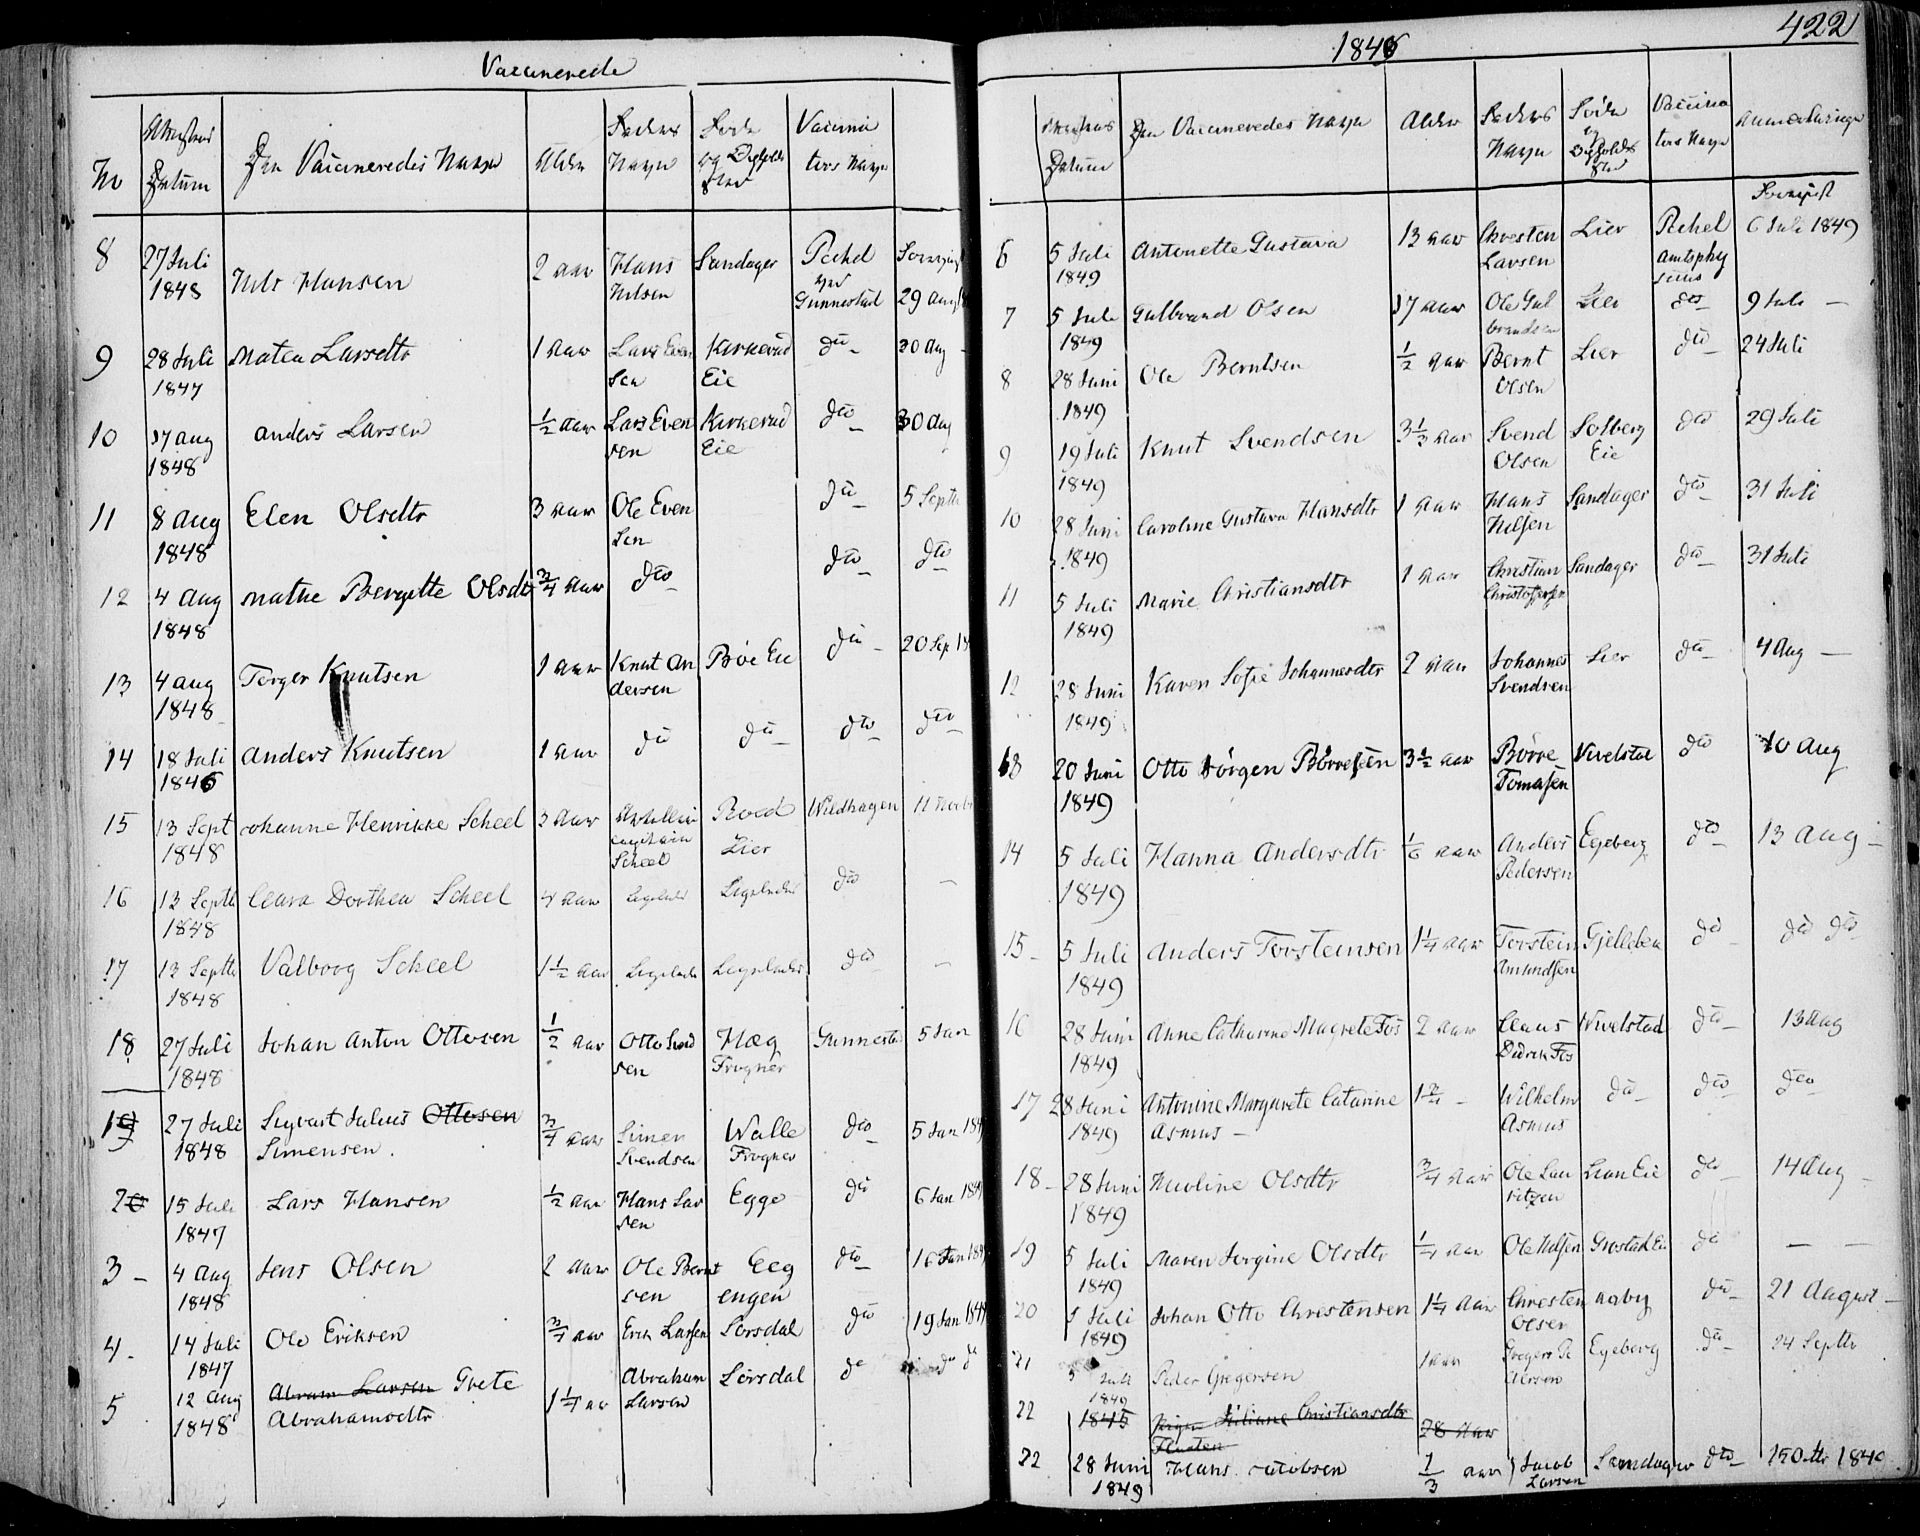 Vaccinerede
No
Datum
Den Vaccineredes Navn
Alder
Faders Navn
Føde og Opholds Sted
Vaccina tørs Navn
8 27 Juli 1848 Nils Hansen 2 aar Hans Nilsen Sandager Pechel Gunnestad 29 aug
9 28 Juli 1847 Matea Larsdtr 1 aar Lars Even sen Kirkerud Eie dto 30 aug
10 17 aug 1848 Anders Larsen ½ aar Lars Even sen Kirkerud Eie dto 30 aug
11 8 aug 1848 Elen Olsdtr 3 aar Ole Even sen dto 5 Septbr
12 4 aug 1848 Mathe Bergitte Olsdtr ¾ aar dto dto dto
13 4 aug 1848 Torger Knutsen 1 aar Knut An dersen Böe Eie dto 20 Sep
14 18 Juli 1846 Anders Knutsen 1 aar dto dto dto dto
15 13 Sept 1848 Johanne Henrikke Scheel 3 aar Scheel Lier Wildhagen 11
16 13 Septb 1848 Clara Dorthea Scheel 4 aar Ligeledes Ligeledes dto —
17 13 Septb 1848 Valborg Scheel 1½ aar Ligeledes Ligeledes dto —
18 27 Juli 1848 Johan Anton Ottosen ½ aar Otto sen Hæg Frogner Gunnestad 5 Jan
19 27 Juli 1848 Sigvart Julius Ottosen Simensen ¾ aar Simen Svendsen Walle Frogner dto 5 Jan 184
20 15 Juli 1847 Lars Hansen ½ aar Hans Lar sen Egge dto 6 Jan 1849
3 - 4 aug 1848 Jens Olsen 2 aar Ole Bernt sen Eeg engen dto 16 Jan 1849
4 - 14 Juli 1847 Ole Eriksen ¾ aar Erik Larsen Sørsdal dto 19 Jan 1849
5 12 aug 1848 Abram Larsen Grete Abrahamsdtr 1¼ aar Abraham Larsen Sørsdal do do do
1848
422
Datum
Den Vaccineredes Navn
Alder
Faders Navn
Føde og Opholds Sted
Vaccina tørs Navn
Anmærkninger
6 5 Juli 1849 Antonette Gustava 13 aar Christen Larsen Lier Pechel amtsphy sicus 6 Juli 1849
7 5 Juli 1849 Gulbrand Olsen 17 aar Ole Gul brandsen Lier dto 9 Juli —
8 28 Juni 1849 Ole Berntsen ½ aar Bernt Olsen Lier dto 24 Juli
9 19 Juli 1849 Knut Svendsen 3⅓ aar Svend Olsen Solberg Eie dto 29 Juli
10 28 Juni 1849 Caroline Gustava Hansdtr 1 aar Hans Nilsen Sandager dto 31 Juli
11 5 Juli 1849 Marie Christiansdtr 1 aar Christian Christoffersen Sandager dto 31 Juli
12 28 Juni 1849 Karen Sofie Johannesdtr 2 aar Johannes Svendsen Lier dto 4 Aug —
13 20 Juni 1849 Otto Jörgen Börresen 3½ aar Börre Tomasen Vivelstad dto 10 Aug
14 5 Juli 1849 Hanna Andersdtr ⅙ aar Anders Pedersen Egeberg dto 13 Aug —
15 - 5 Juli 1849 Anders Torsteinsen 1¼ aar Torstein Amundsen Gjellebek dto dto dto
16 28 Juni 1849 Anne Catharine Magrete Fos 2 aar Claus Didrik Fos Vivelstad dto 13 aug
17 28 Juni 1849 Antonine Margarete Catarine Asmus — 1¾ - Wilhelm Asmus dto dto dto
18 - 28 Juni 1849 Nicoline Olsdtr ¾ aar Ole Lau ritzen Lian Eie dto 14 Aug —
19 5 Juli 1849 Maren Jorgine Olsdtr ¼ aar Ole Nilsen Grøstad Ei dto — —
20 5 Juli 1849 Johan Otto Christensen 1¼ aar Christen Olsen Aaby dto 21 August —
21 5 Juli 1849 Peder Gregersen 1 aar Gregers Pe dersen Egeberg dto 24 Septbr
22 1845 Juliane Christiansdtr 28 aar
22 28 Juni 1849 Hans Jacobsen ⅓ aar Jacob Larsen Sandager dto 15 Octbr 1849